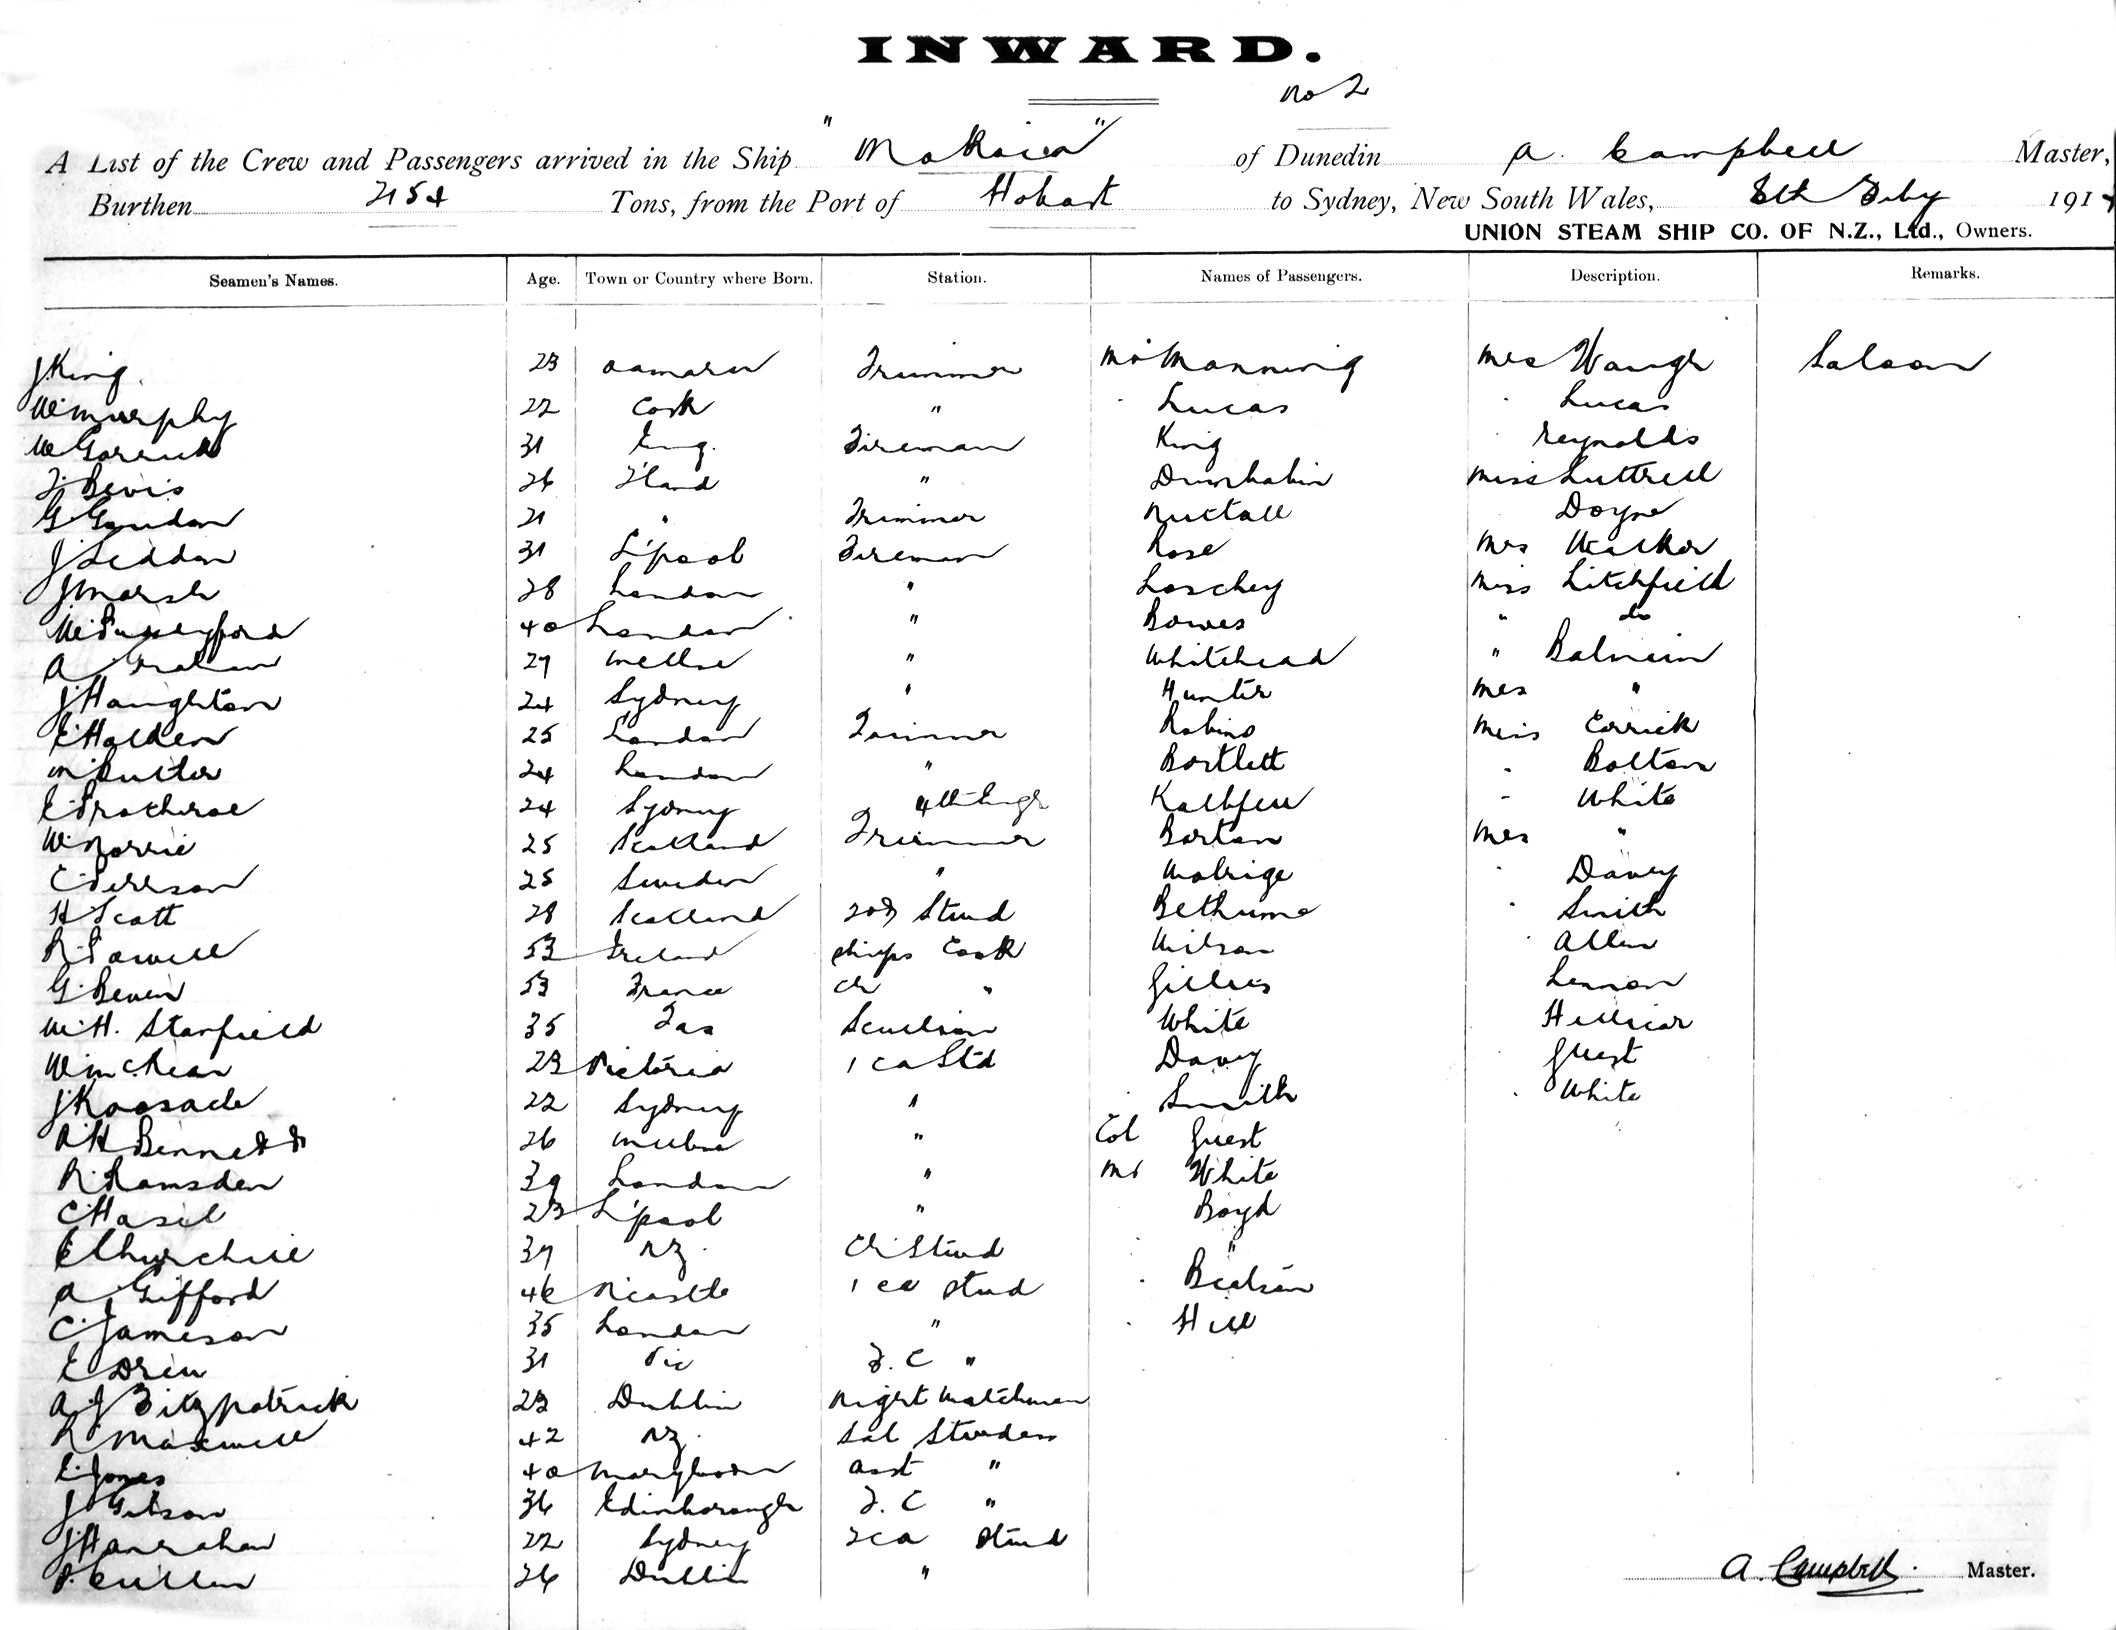 INWARD.
No 2
A List of the Crew and Passengers arrived in the Ship "Mokoia" of Dunedin A. Campbell Master,
Burthen 2154 Tons, from the Port of Hobart to Sydney, New South Wales, 8th Feby 1914
UNION STEAM SHIP CO. OF N.Z., Ltd., Owners.
Seamen's Names. Age. Town or Country where Born. Station. Names of Passengers. Description. Remarks.
J King 23 Oamaru Trimmer Mr Manning Mrs Waugh Saloon
W Murphy 22 Cork " Lucas Lucas
W Garrick 31 Eng. Fireman King Reynolds
Bevis 26 " Dunbabin Miss Luttrell
G 21 " Trimmer Nuttall Doyne
J Seddon 31 L'pool Fireman Rose Mrs Walker
J Marsh 28 London " Loschey Miss Litchfield
W 40 London " Bowes " do
A Graham 27 Melbne " Whitehead " Balmain
J Haughton 24 Sydney " Hunter Mrs "
E Holden 25 London Trimmer Robins Miss Errick
M Butler 24 London " Bartlett Bolton
E Protheroe 24 Sydney 4th Engr White
W Norrie 25 Scotland Trimmer Barton Mrs "
C Perrson 25 Sweden " Davey
H Scott 28 Scotland 2nd Stwd Bethune Smith
R Powell 53 Ireland Ships Cook Wilson Allen
G Beven 53 France Ch " Gillies Lennon
W.H. Stanfield 35 Tas Scullion White Hellicar
W McLean 23 Victoria 1 ca Std Davey Guest
J 22 Sydney " Smith White
A H Bennett 26 Melbne " Col Guest
R Ramsden 39 London " Mr White
C Hasil 23 L'pool " Boyd
E Churchill 37 NZ. Ch Stwd "
A Gifford 46 N'castle 1 ca Stwd
C. Jameson 35 London " Hill
E Drew 31 Vic F.C "
A J Fitzpatrick 23 Dublin Night Watchman
R Maxwell 42 NZ. Sal Stwdess
E. Jones 40 Maryboro Asst "
J Gibson 36 Edinborough F.C "
J Hanrahan 22 Sydney 2 ca Stwd
P. Cullen 26 Dublin "
A. Campbell. Master.